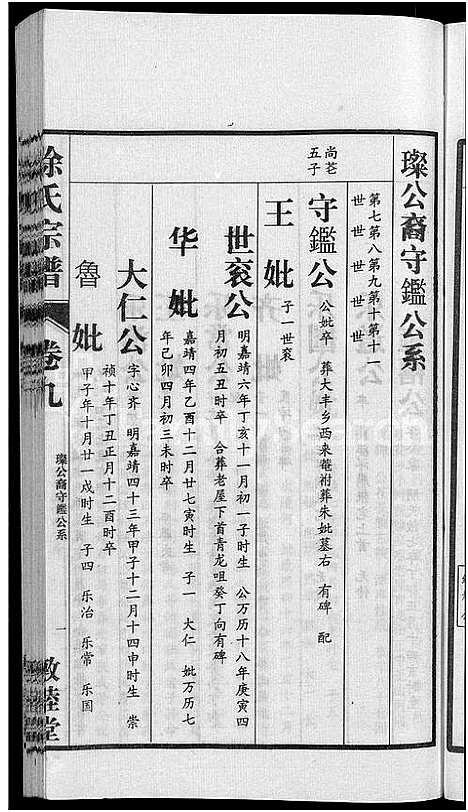 璨公裔守鑑公系
第七世 第八世 第九世 第十世 第十一世
尚茖五子
守鑑公 公妣卒 葬大丰乡西来菴祔葬朱妣墓右 有碑 配
王妣 子一世衮
世衮公 明嘉靖六年丁亥十一月初一子时生 公万历十八年庚寅四
月初五丑时卒 合葬老屋下首青龙咀癸丁向有碑
华妣 嘉靖四年乙酉十二月廿七寅时生 子一 大仁 妣万历七
年己卯四月初三未时卒
大仁公 字心齐 明嘉靖四十三年甲子十二月十四申时生 崇
祯十年丁丑正月十二酉时卒
魯妣 甲子年十月廿一戍时生 子四 乐治 乐常 乐国
徐氏宗譜 卷九
璨公裔守鑑公系
一
敦睦堂